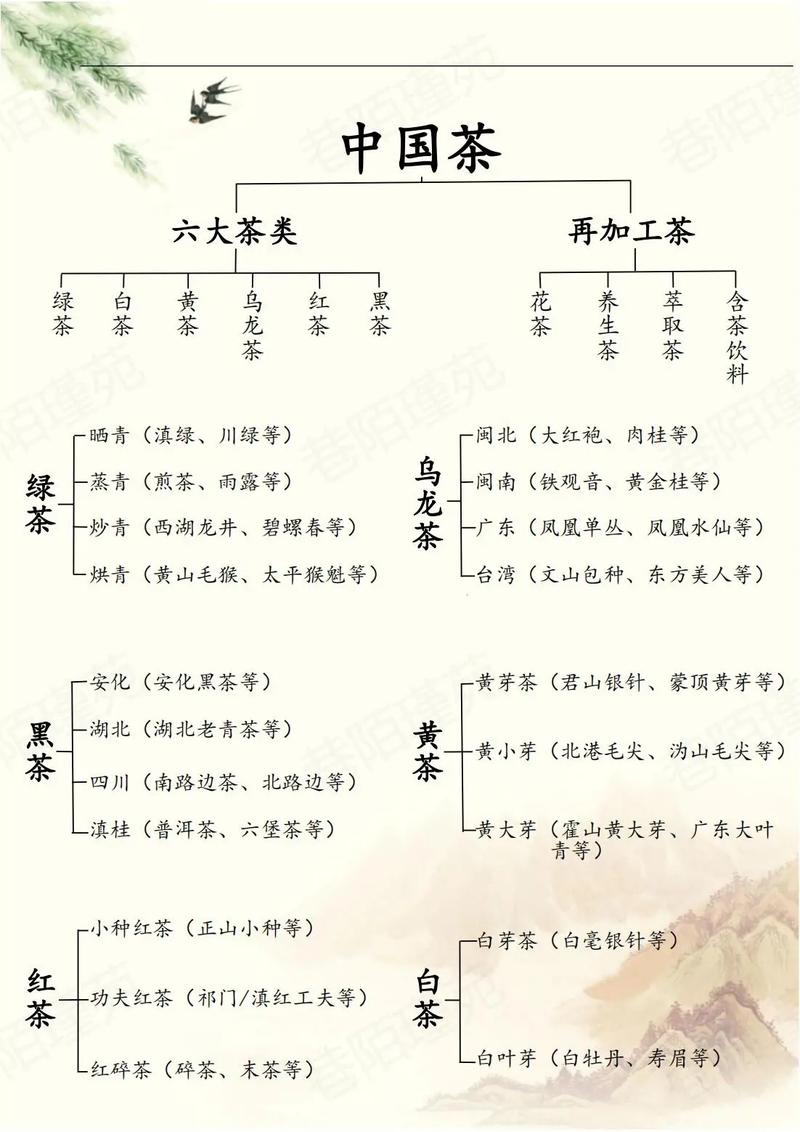 中国茶
六大茶类
再加工茶
绿茶
白茶
黄茶
乌龙茶
红茶
黑茶
花茶
养生茶
萃取茶
含茶饮料
绿茶
晒青（滇绿、川绿等）
蒸青（煎茶、雨露等）
炒青（西湖龙井、碧螺春等）
烘青（黄山毛猴、太平猴魁等）
乌龙茶
闽北（大红袍、肉桂等）
闽南（铁观音、黄金桂等）
广东（凤凰单丛、凤凰水仙等）
台湾（文山包种、东方美人等）
黑茶
安化（安化黑茶等）
湖北（湖北老青茶等）
四川（南路边茶、北路边等）
滇桂（普洱茶、六堡茶等）
黄茶
黄芽茶（君山银针、蒙顶黄芽等）
黄小芽（北港毛尖、沩山毛尖等）
黄大芽（霍山黄大芽、广东大叶
青等）
红茶
小种红茶（正山小种等）
功夫红茶（祁门/滇红工夫等）
红碎茶（碎茶、末茶等）
白茶
白芽茶（白毫银针等）
白叶芽（白牡丹、寿眉等）
巷陌瑾苑